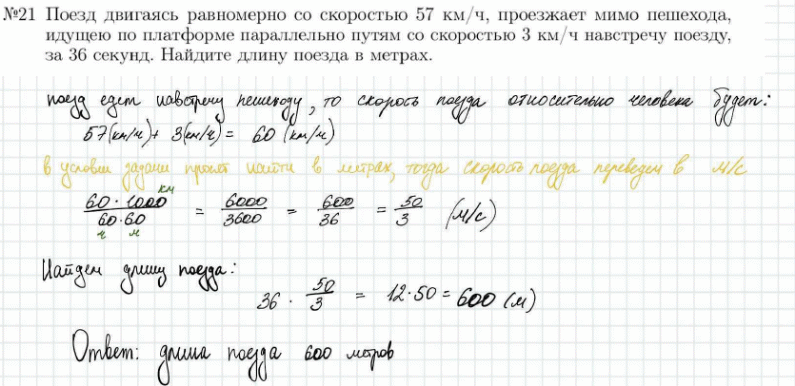 №21 Поезд двигаясь равномерно со скоростью 57 км/ч, проезжает мимо пешехода,
идущею по платформе параллельно путям со скоростью 3 км/ч навстречу поезду,
за 36 секунд. Найдите длину поезда в метрах.
поезд едет навстречу пешеходу, то скорость поезда относительно человека будет:
57(км/ч)+ 3(км/ч) = 60 (км/ч)
в условии задачи просят найти в метрах, тогда скорость поезда переведем в м/с
60·1000 км / 60·60 ч м = 6000/3600 = 600/36 = 50/3 (м/с)
Найдем длину поезда:
36 · 50/3 = 12·50 = 600 (м)
Ответ: длина поезда 600 метров